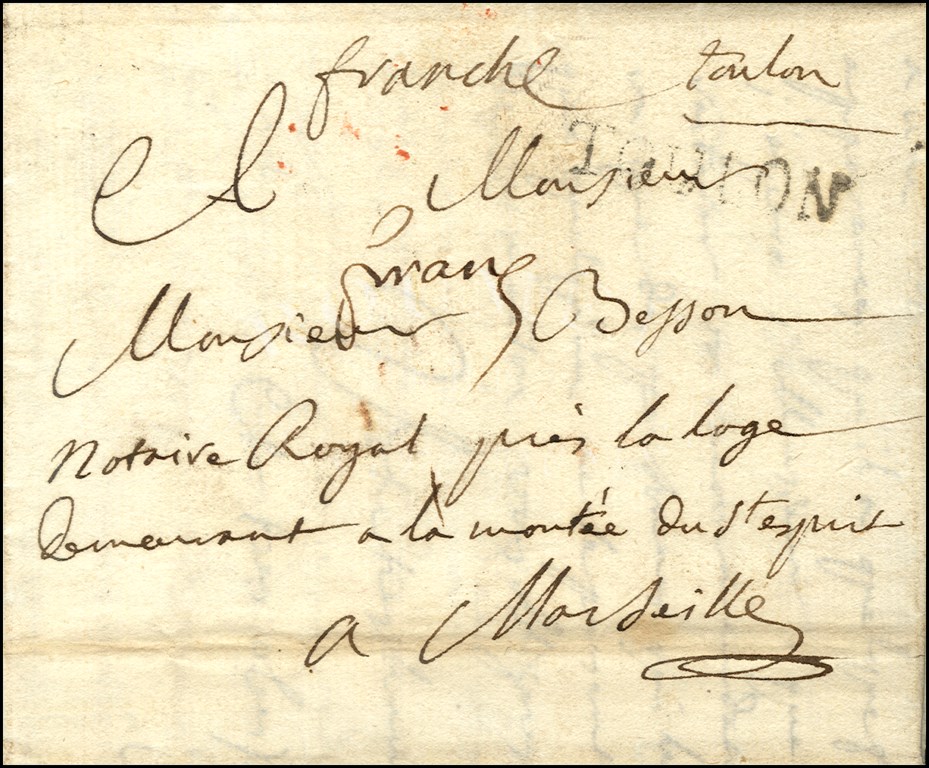 franche toulon
A Monsieur
TOULON
franc
Monsieur Besson
Notaire Royal près la loge
Demeurant a la montée du St esprit
a Marseille